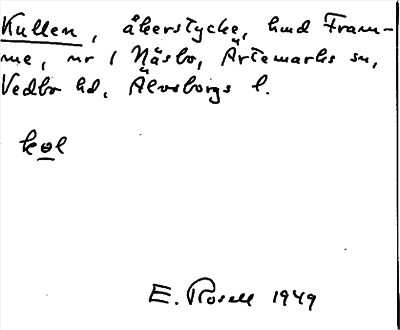 Kullen, åkerstycke, hmd Fram-
me, nr 1 Näsbo, Ärtemarks sn,
Vedbo hd, Älvsborgs l.
kɵl
E. Rosell 1949